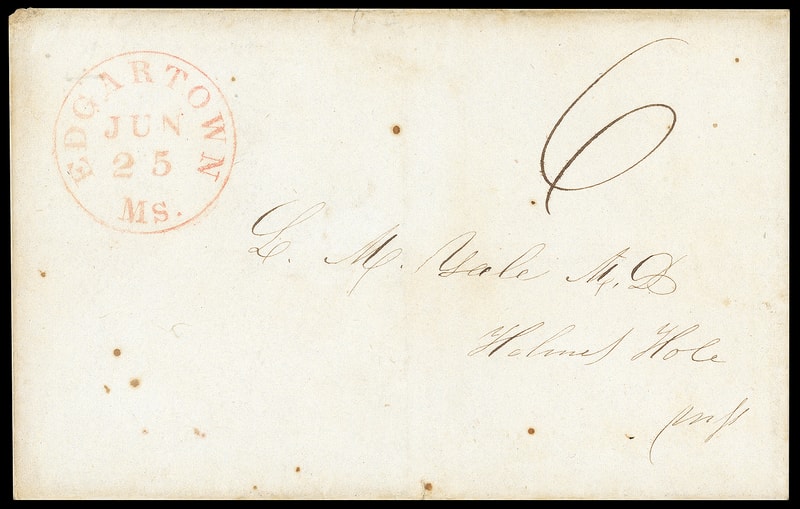 EDGARTOWN
JUN
25
MS.
6
L. M. Yale M.D
Holmes Hole
Mass